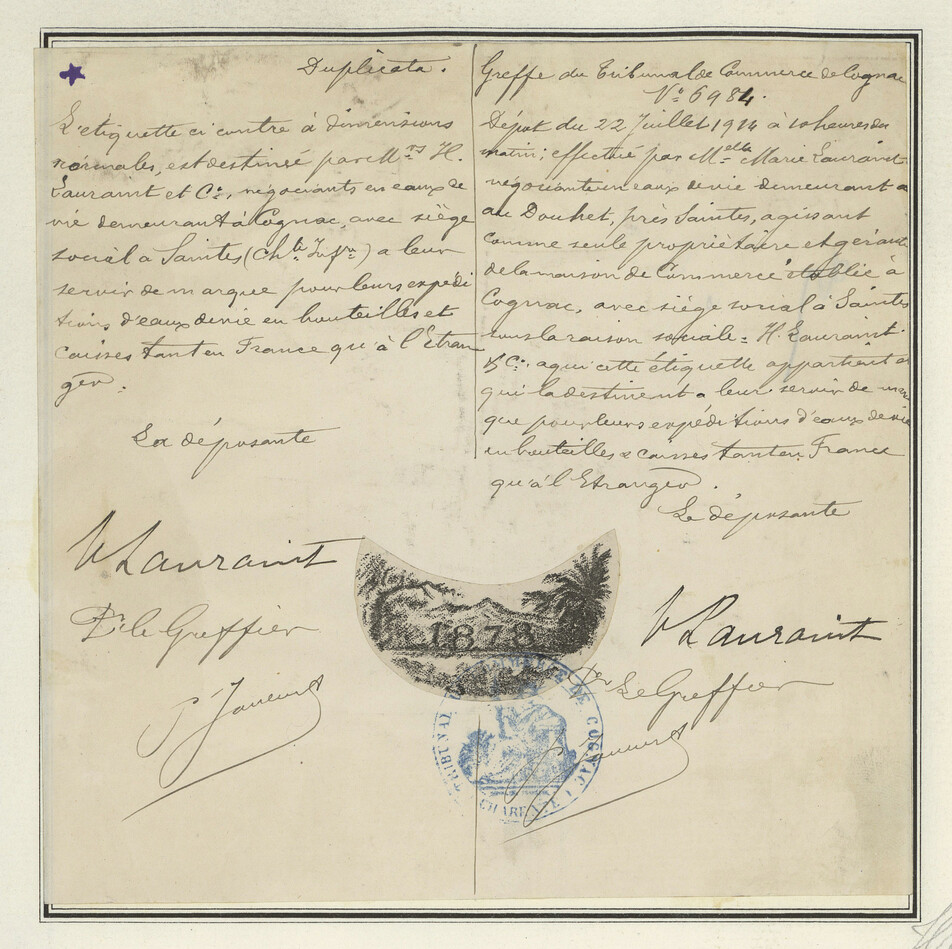 Duplicata.
L'etiquette ci contre à dimensions
normales, est destinée par Mrs H.
Lauraint et Cie, négociants en eaux de
vie demeurant à Cognac, avec siège
social à Saintes (Chte Infre) a leur
servir de marque pour leurs expédi
tions d'eaux de vie en bouteilles et
caisses tant en France qu'à l'Etran
ger.
La déposante
Lauraint
Pr le Greffier
Greffe du Tribunal de Commerce de Cognac
No 6984.
Dépot du 22 Juillet 1914 à 10 heures du
matin; effectué par Melle Marie Lauraint
négociante en eaux de vie demeurant
au Douhet, près Saintes, agissant
comme seule propriètaire et gérante
de la maison de Commerce établie à
Cognac, avec siège social à Saintes
sous la raison sociale: H. Lauraint
& Cie a qui cette étiquette appartient et
qui la destinent a leur servir de mar
que pour leurs expéditions d'eaux de vie
en bouteilles & caisses tant en France
qu'à l'Etranger.
La déposante
Lauraint
Pr Le Greffier
1878
TRIBUNAL DE COMMERCE DE COGNAC
CHARENTE